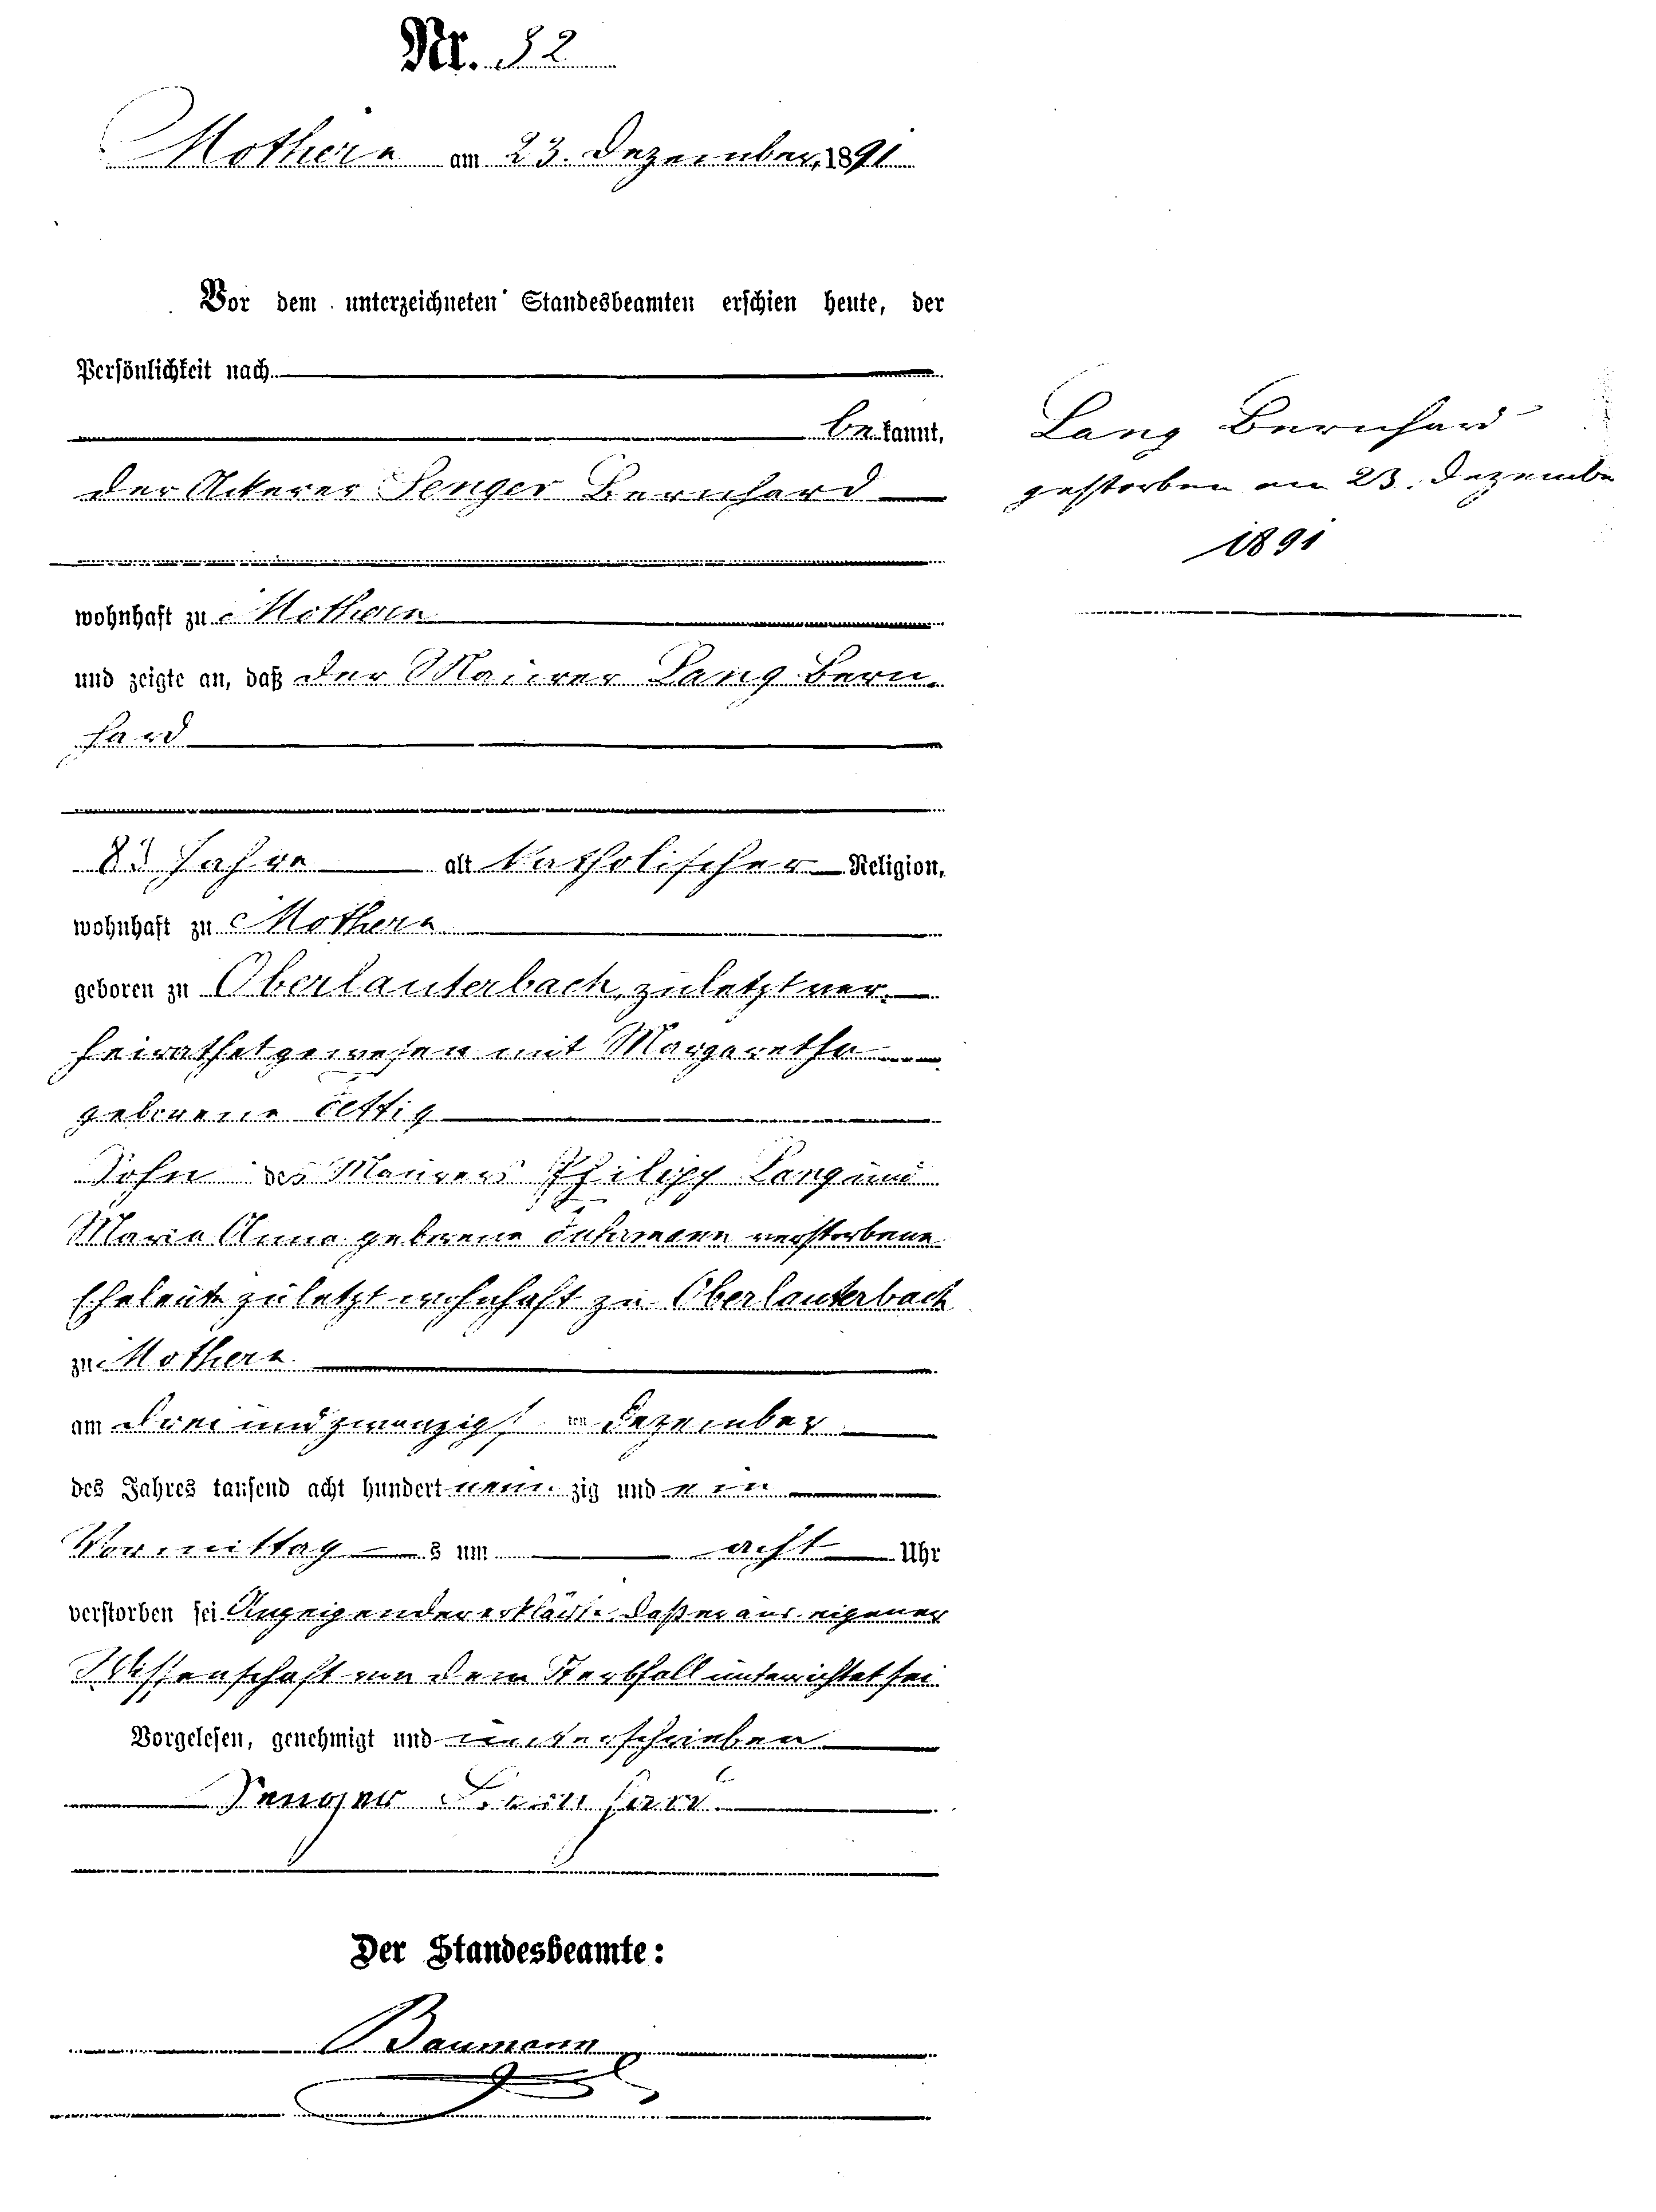 Nr. 32
Mothern am 23. Dezember 1891
Vor dem unterzeichneten Standesbeamten erschien heute, der
Persönlichkeit nach
bekannt,
der Ackerer Senger Bernhard
wohnhaft zu Mothern
und zeigte an, daß der Maurer Lang Bern-
hard
83 Jahre alt katholischer Religion,
wohnhaft zu Mothern
geboren zu Oberlauterbach, zuletzt ver-
heirathet gewesen mit Margaretha
geborene
Sohn des Maurers Philipp Lang und
Maria Anna geborene verstorbene
Eheleute zuletzt wohnhaft zu Oberlauterbach
zu Mothern
am drei und zwanzigsten Dezember
des Jahres tausend acht hundert neunzig und ein
Vormittags um acht Uhr
verstorben sei Anzeigender erklärte, daß er aus eigener
Wissenschaft von dem Sterbfall unterrichtet sei
Vorgelesen, genehmigt und unterschrieben
Senger Bernhard
Der Standesbeamte:
Baumann
Lang Bernhard
gestorben am 23. Dezembe
1891